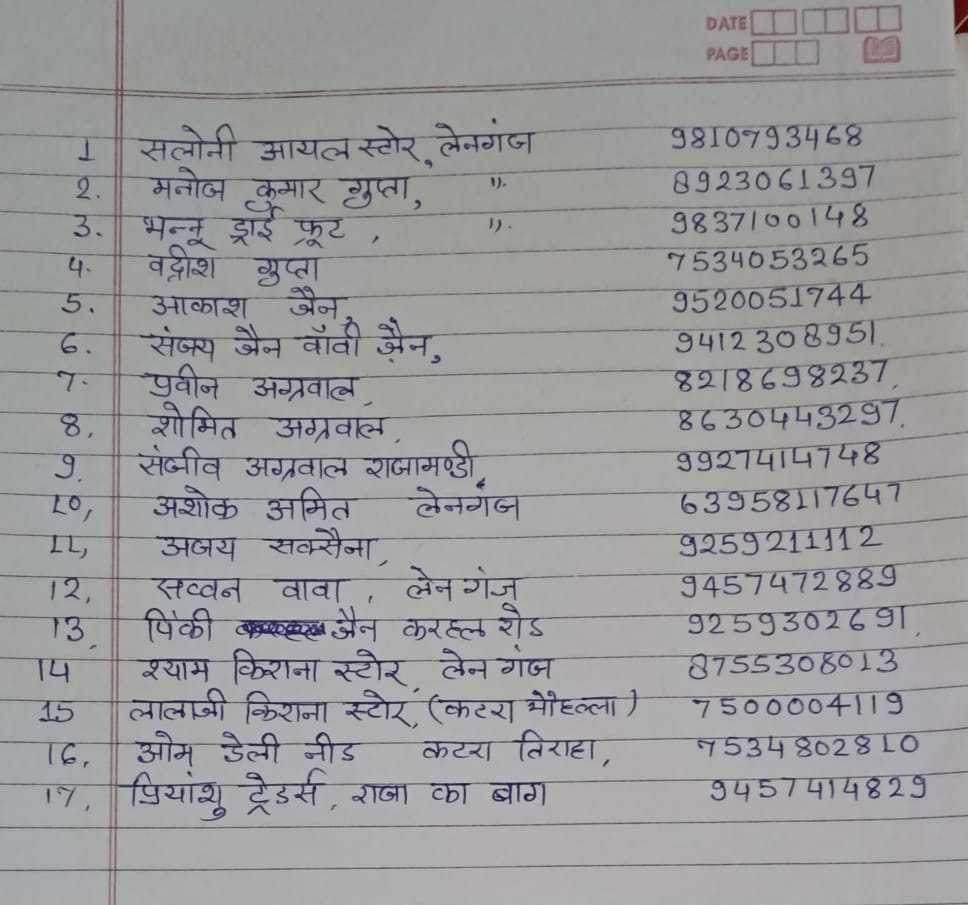 DATE
PAGE
1 सलोनी आयल स्टोर, लेनगंज 9810793468
2. मनोज कुमार गुप्ता, ". 8923061397
3. भन्नू ड्राई फ्रूट , ". 9837100148
4. वद्रीश गुप्ता 7534053265
5. आकाश जैन, 9520051744
6. संजय जैन वॉवी जैन, 9412308951.
7. प्रवीन अग्रवाल, 8218698237.
8. शोमित अग्रवाल, 8630443297.
9. संजीव अग्रवाल राजामण्डी, 9927414748
10, अशोक अमित लेनगंज 63958117647
11, अजय सक्सैना, 9259211112
12, सव्वन वावा , लेन गंज 9457472889
13, पिंकी जैन करहल रोड 9259302691.
14 श्याम किराना स्टोर, लेन गंज 8755308013
15 लालाजी किराना स्टोर, (कटरा मोहल्ला) 7500004119
16, ओम डेली नीड कटरा तिराहा, 7534802810
17, प्रियांशु ट्रेडर्स, राजा का बाग 9457414829